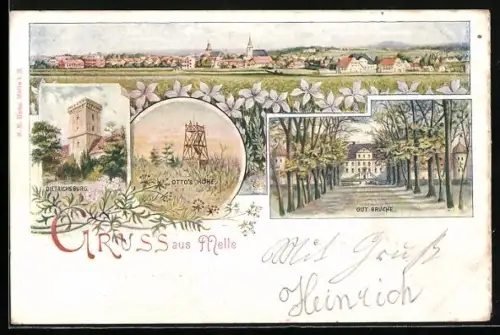 DIETRICHSBURG.
OTTO'S HÖHE.
GUT BRUCHE.
GRUSS aus Melle
Mit Gruß
Heinrich